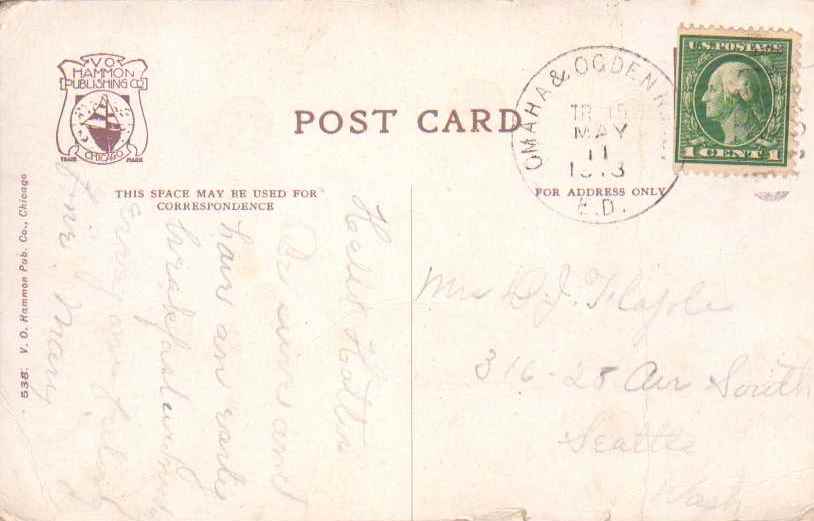 V.O.
HAMMON
PUBLISHING CO.
TRADE MARK
CHICAGO
POST CARD
THIS SPACE MAY BE USED FOR
CORRESPONDENCE
FOR ADDRESS ONLY
OMAHA & OGDEN
TR 15
MAY
11
1913
R.D.
U.S. POSTAGE
1 CENT 1
538. V. O. Hammon Pub. Co., Chicago
Hattie
Be sure and
have an early
breakfast
Mary
Mrs D.J.
316 - 28 Ave South
Seattle
Wash